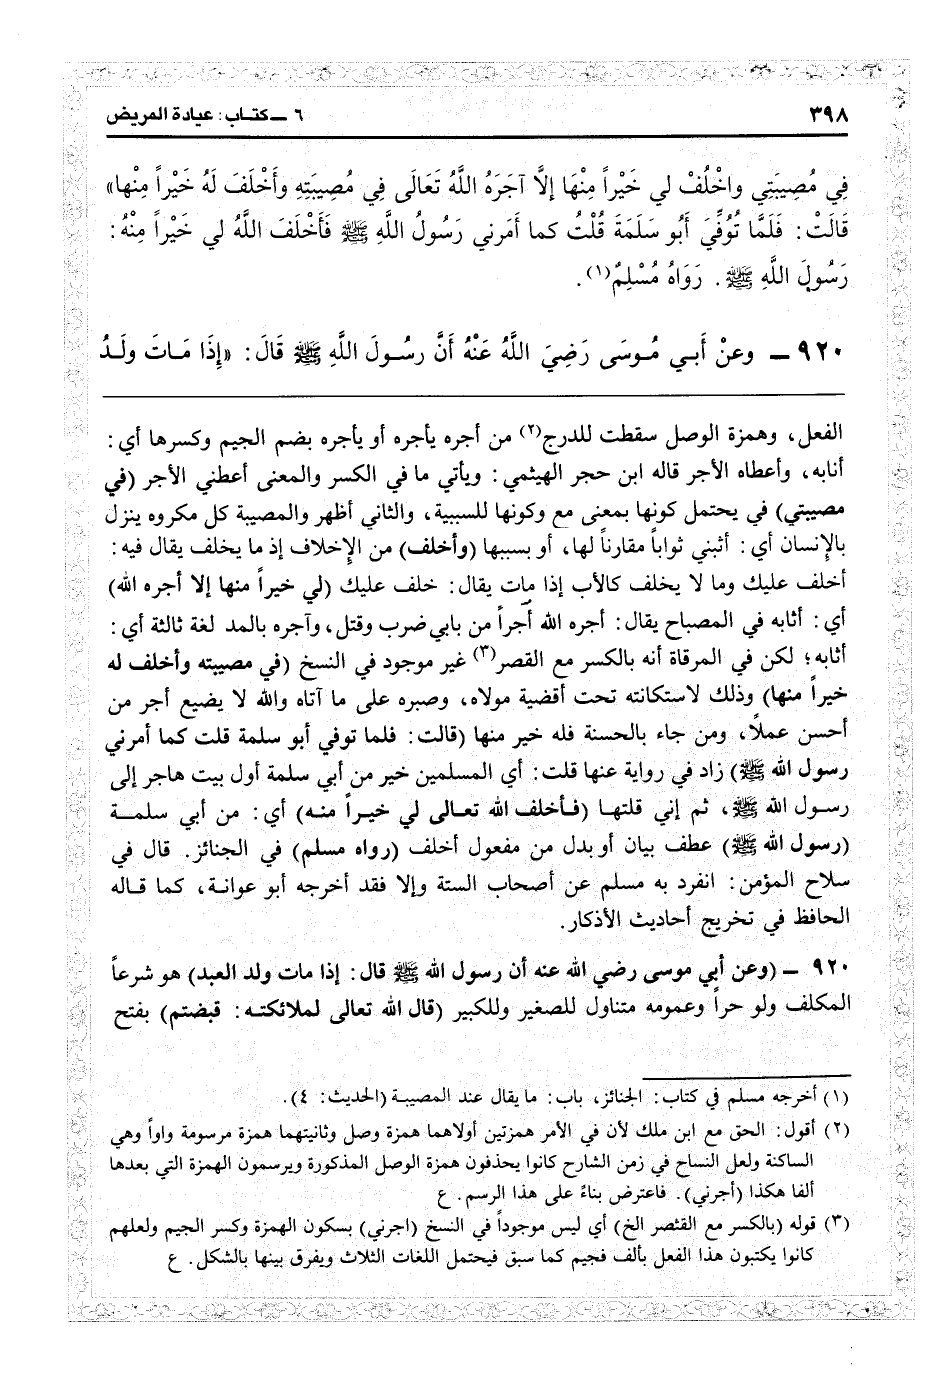 ٣٩٨
٦ ــ كتـاب: عيادة المريض
فِي مُصِيبَتِي واخْلُفْ لي خَيْراً مِنْهَا إلَّا آجَرَهُ اللَّهُ تَعَالَى فِي مُصِيبَتِهِ وأَخْلَفَ لَهُ خَيْراً مِنْها»
قَالَتْ: فَلَمَّا تُوُفِّيَ أَبُو سَلَمَةَ قُلْتُ كما أمَرني رَسُولُ اللَّهِ ﷺ فَأَخْلَفَ اللَّهُ لي خَيْراً مِنْهُ:
رَسُولَ اللَّهِ ﷺ. رَوَاهُ مُسْلِمٌ(١).
٩٢٠ ــ وعنْ أَبـي مُـوسَى رَضِيَ اللَّهُ عَنْهُ أنَّ رسُـولَ اللَّهِ ﷺ قَالَ: «إِذَا مَـاتَ ولَـدُ
الفعل، وهمزة الوصل سقطت للدرج(٢) من أجره يأجره أو يأجره بضم الجيم وكسرها أي:
أنابه، وأعطاه الأجر قاله ابن حجر الهيثمي: ويأتي ما في الكسر والمعنى أعطني الأجر (في
مصيبتي) في يحتمل كونها بمعنى مع وكونها للسببية، والثاني أظهر والمصيبة كل مكروه ينزل
بالإنسان أي: أثبني ثواباً مقارناً لها، أو بسببها (وأخلف) من الإخلاف إذ ما يخلف يقال فيه:
أخلف عليك وما لا يخلف كالأب إذا مات يقال: خلف عليك (لي خيراً منها إلا أجره الله)
أي: أثابه في المصباح يقال: أجره الله أجراً من بابي ضرب وقتل، وآجره بالمد لغة ثالثة أي:
أثابه؛ لكن في المرقاة أنه بالكسر مع القصر(٣) غير موجود في النسخ (في مصيبته وأخلف له
خيراً منها) وذلك لاستكانته تحت أقضية مولاه، وصبره على ما آتاه والله لا يضيع أجر من
أحسن عملاً، ومن جاء بالحسنة فله خير منها (قالت: فلما توفي أبو سلمة قلت كما أمرني
رسول الله ﷺ) زاد في رواية عنها قلت: أي المسلمين خير من أبي سلمة أول بيت هاجر إلى
رسـول الله ﷺ، ثم إني قلتهـا (فـأخلف الله تعـالى لي خيـراً منـه) أي: من أبي سلمـة
(رسول الله ﷺ) عطف بيان أو بدل من مفعول أخلف (رواه مسلم) في الجنائز. قال في
سلاح المؤمن: انفرد به مسلم عن أصحاب الستة وإلا فقد أخرجه أبو عوانة، كما قـاله
الحافظ في تخريج أحاديث الأذكار.
٩٢٠ ــ (وعن أبي موسى رضي الله عنه أن رسول الله ﷺ قال: إذا مات ولد العبد) هو شرعاً
المكلف ولو حراً وعمومه متناول للصغير وللكبير (قال الله تعالى لملائكتـه: قبضتم) بفتح
(١) أخرجه مسلم في كتاب: الجنائز، باب: ما يقال عند المصيبة (الحديث: ٤).
(٢) أقول: الحق مع ابن ملك لأن في الأمر همزتين أولاهما همزة وصل وثانيتهما همزة مرسومة واواً وهي
الساكنة ولعل النساخ في زمن الشارح كانوا يحذفون همزة الوصل المذكورة ويرسمون الهمزة التي بعدها
ألفا هكذا (أجرني). فاعترض بناءً على هذا الرسم. ع
(٣) قوله (بالكسر مع القصر الخ) أي ليس موجوداً في النسخ (اجرني) بسكون الهمزة وكسر الجيم ولعلهم
كانوا يكتبون هذا الفعل بألف فجيم كما سبق فيحتمل اللغات الثلاث ويفرق بينها بالشكل. ع